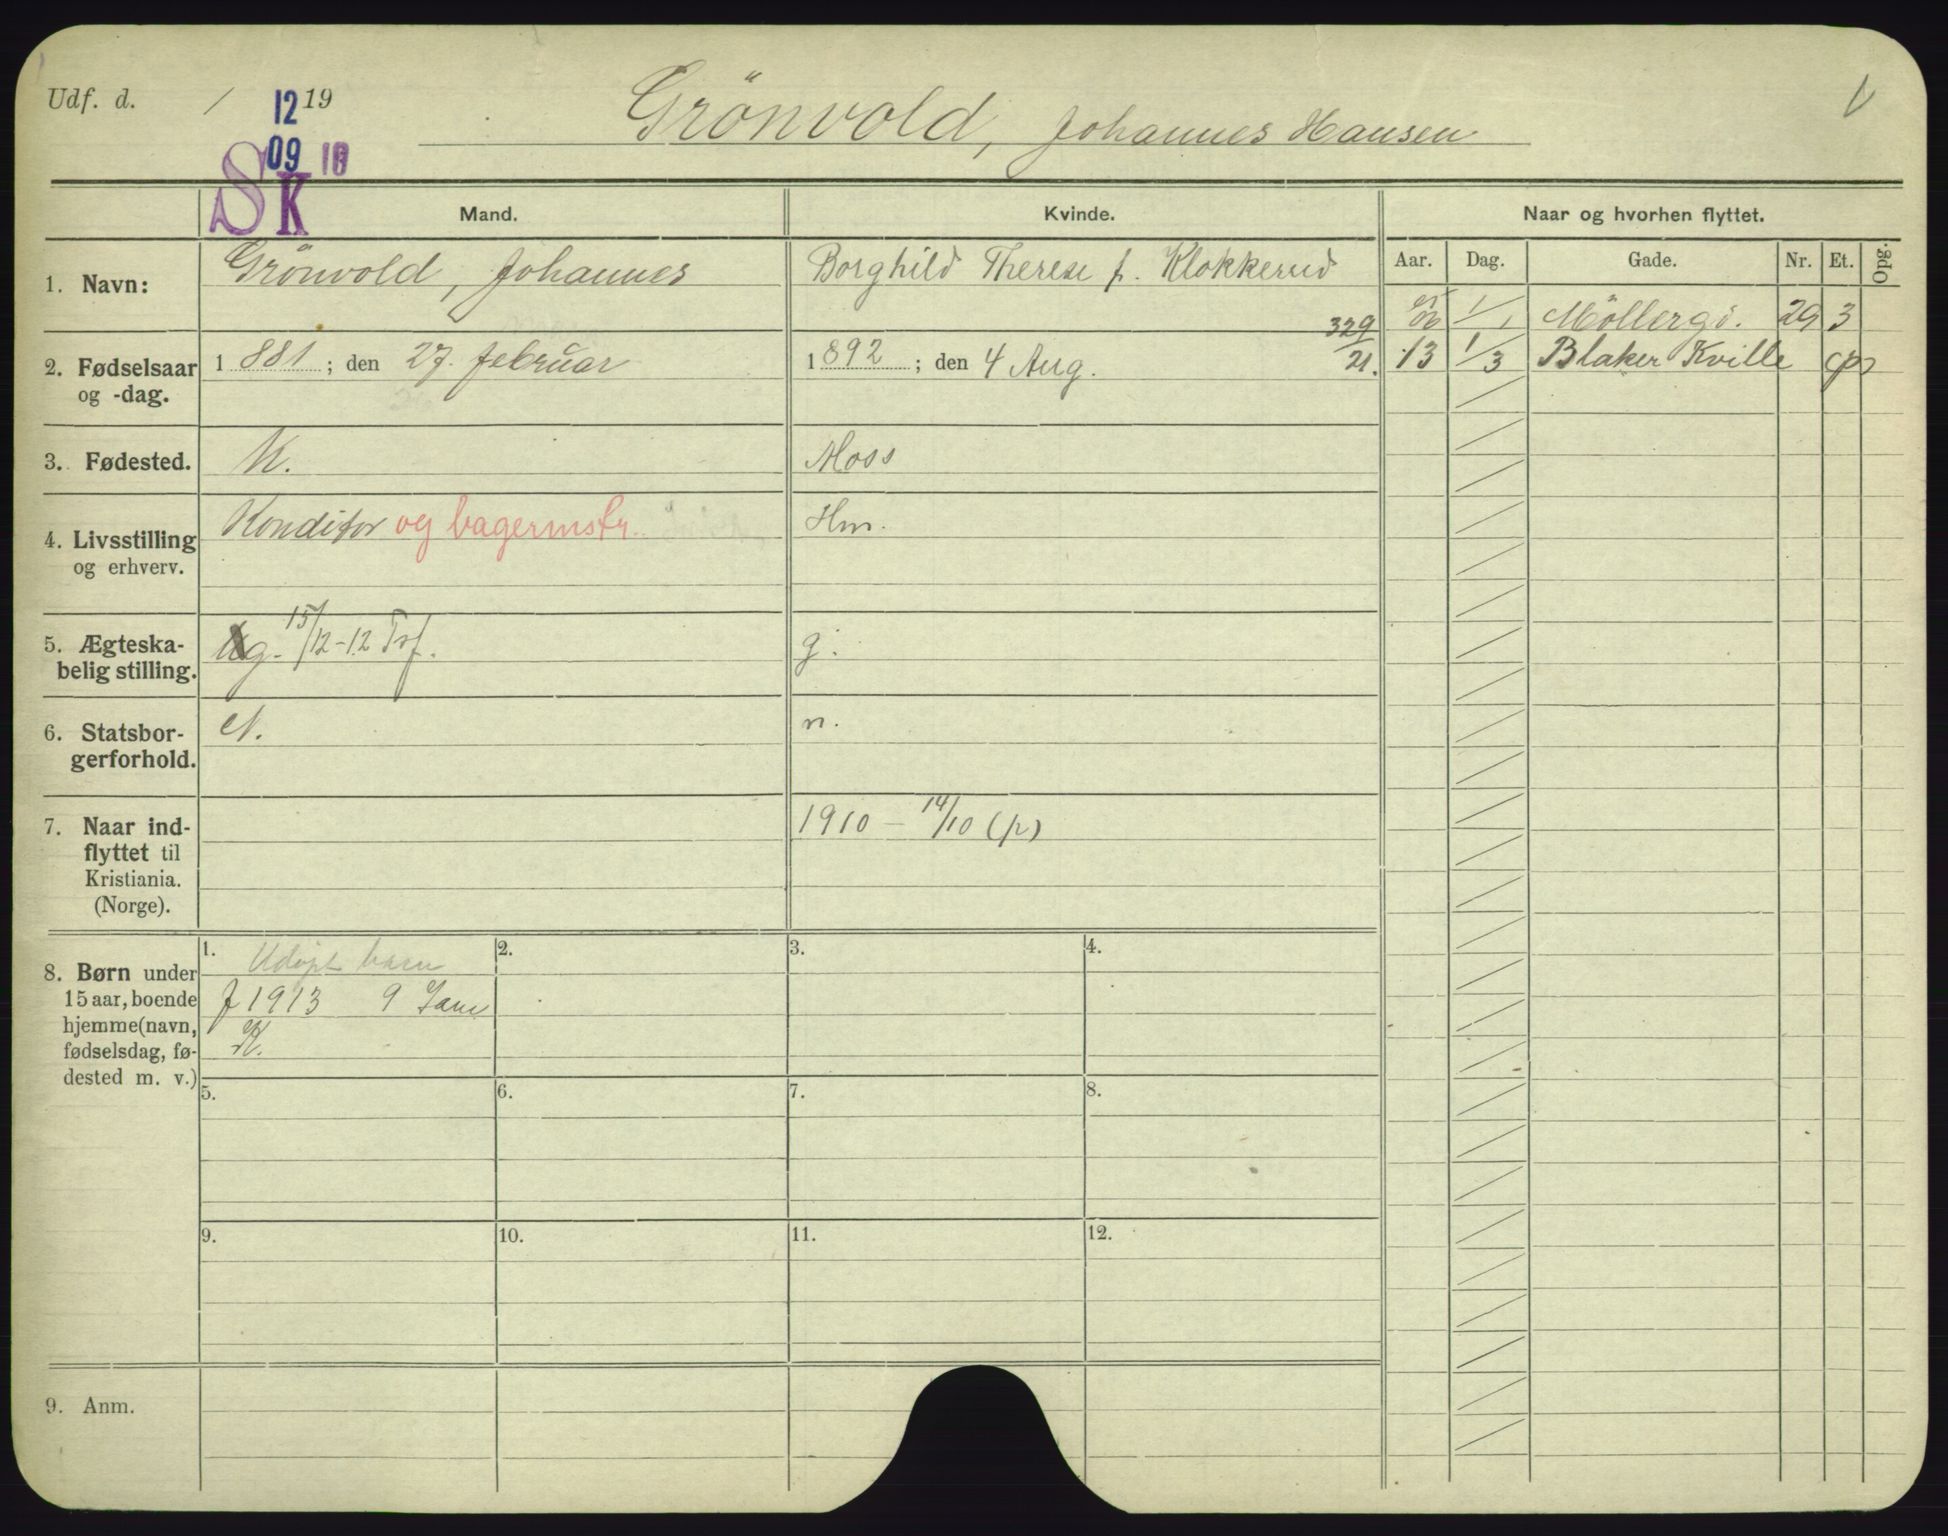 Udf. d. / 12 19
09 10
SK
Grönvold, Johannes Hansen
Mand.
Kvinde.
Naar og hvorhen flyttet.
Aar. Dag. Gade. Nr. Et. Opg.
1. Navn:
Grönvold, Johannes
Borghild Therese f. Klokkerud
329/21.
06 1/1 Möllergd. 29 3
13 1/3 Blaker Kville
2. Fødselsaar og -dag.
1 881 ; den 27. februar
1 892 ; den 4 Aug.
3. Fødested.
K.
Moss
4. Livsstilling og erhverv.
Konditor og bagermstr.
Hm.
5. Ægteskabelig stilling.
g. 15/12-12 Trf.
g.
6. Statsborgerforhold.
N.
n.
7. Naar indflyttet til Kristiania. (Norge).
1910 - 14/10 (p)
8. Børn under 15 aar, boende hjemme (navn, fødselsdag, fødested m. v.)
1. 2. 3. 4.
Udöpt barn
f 1913 9 Jan
K.
5. 6. 7. 8.
9. 10. 11. 12.
9. Anm.